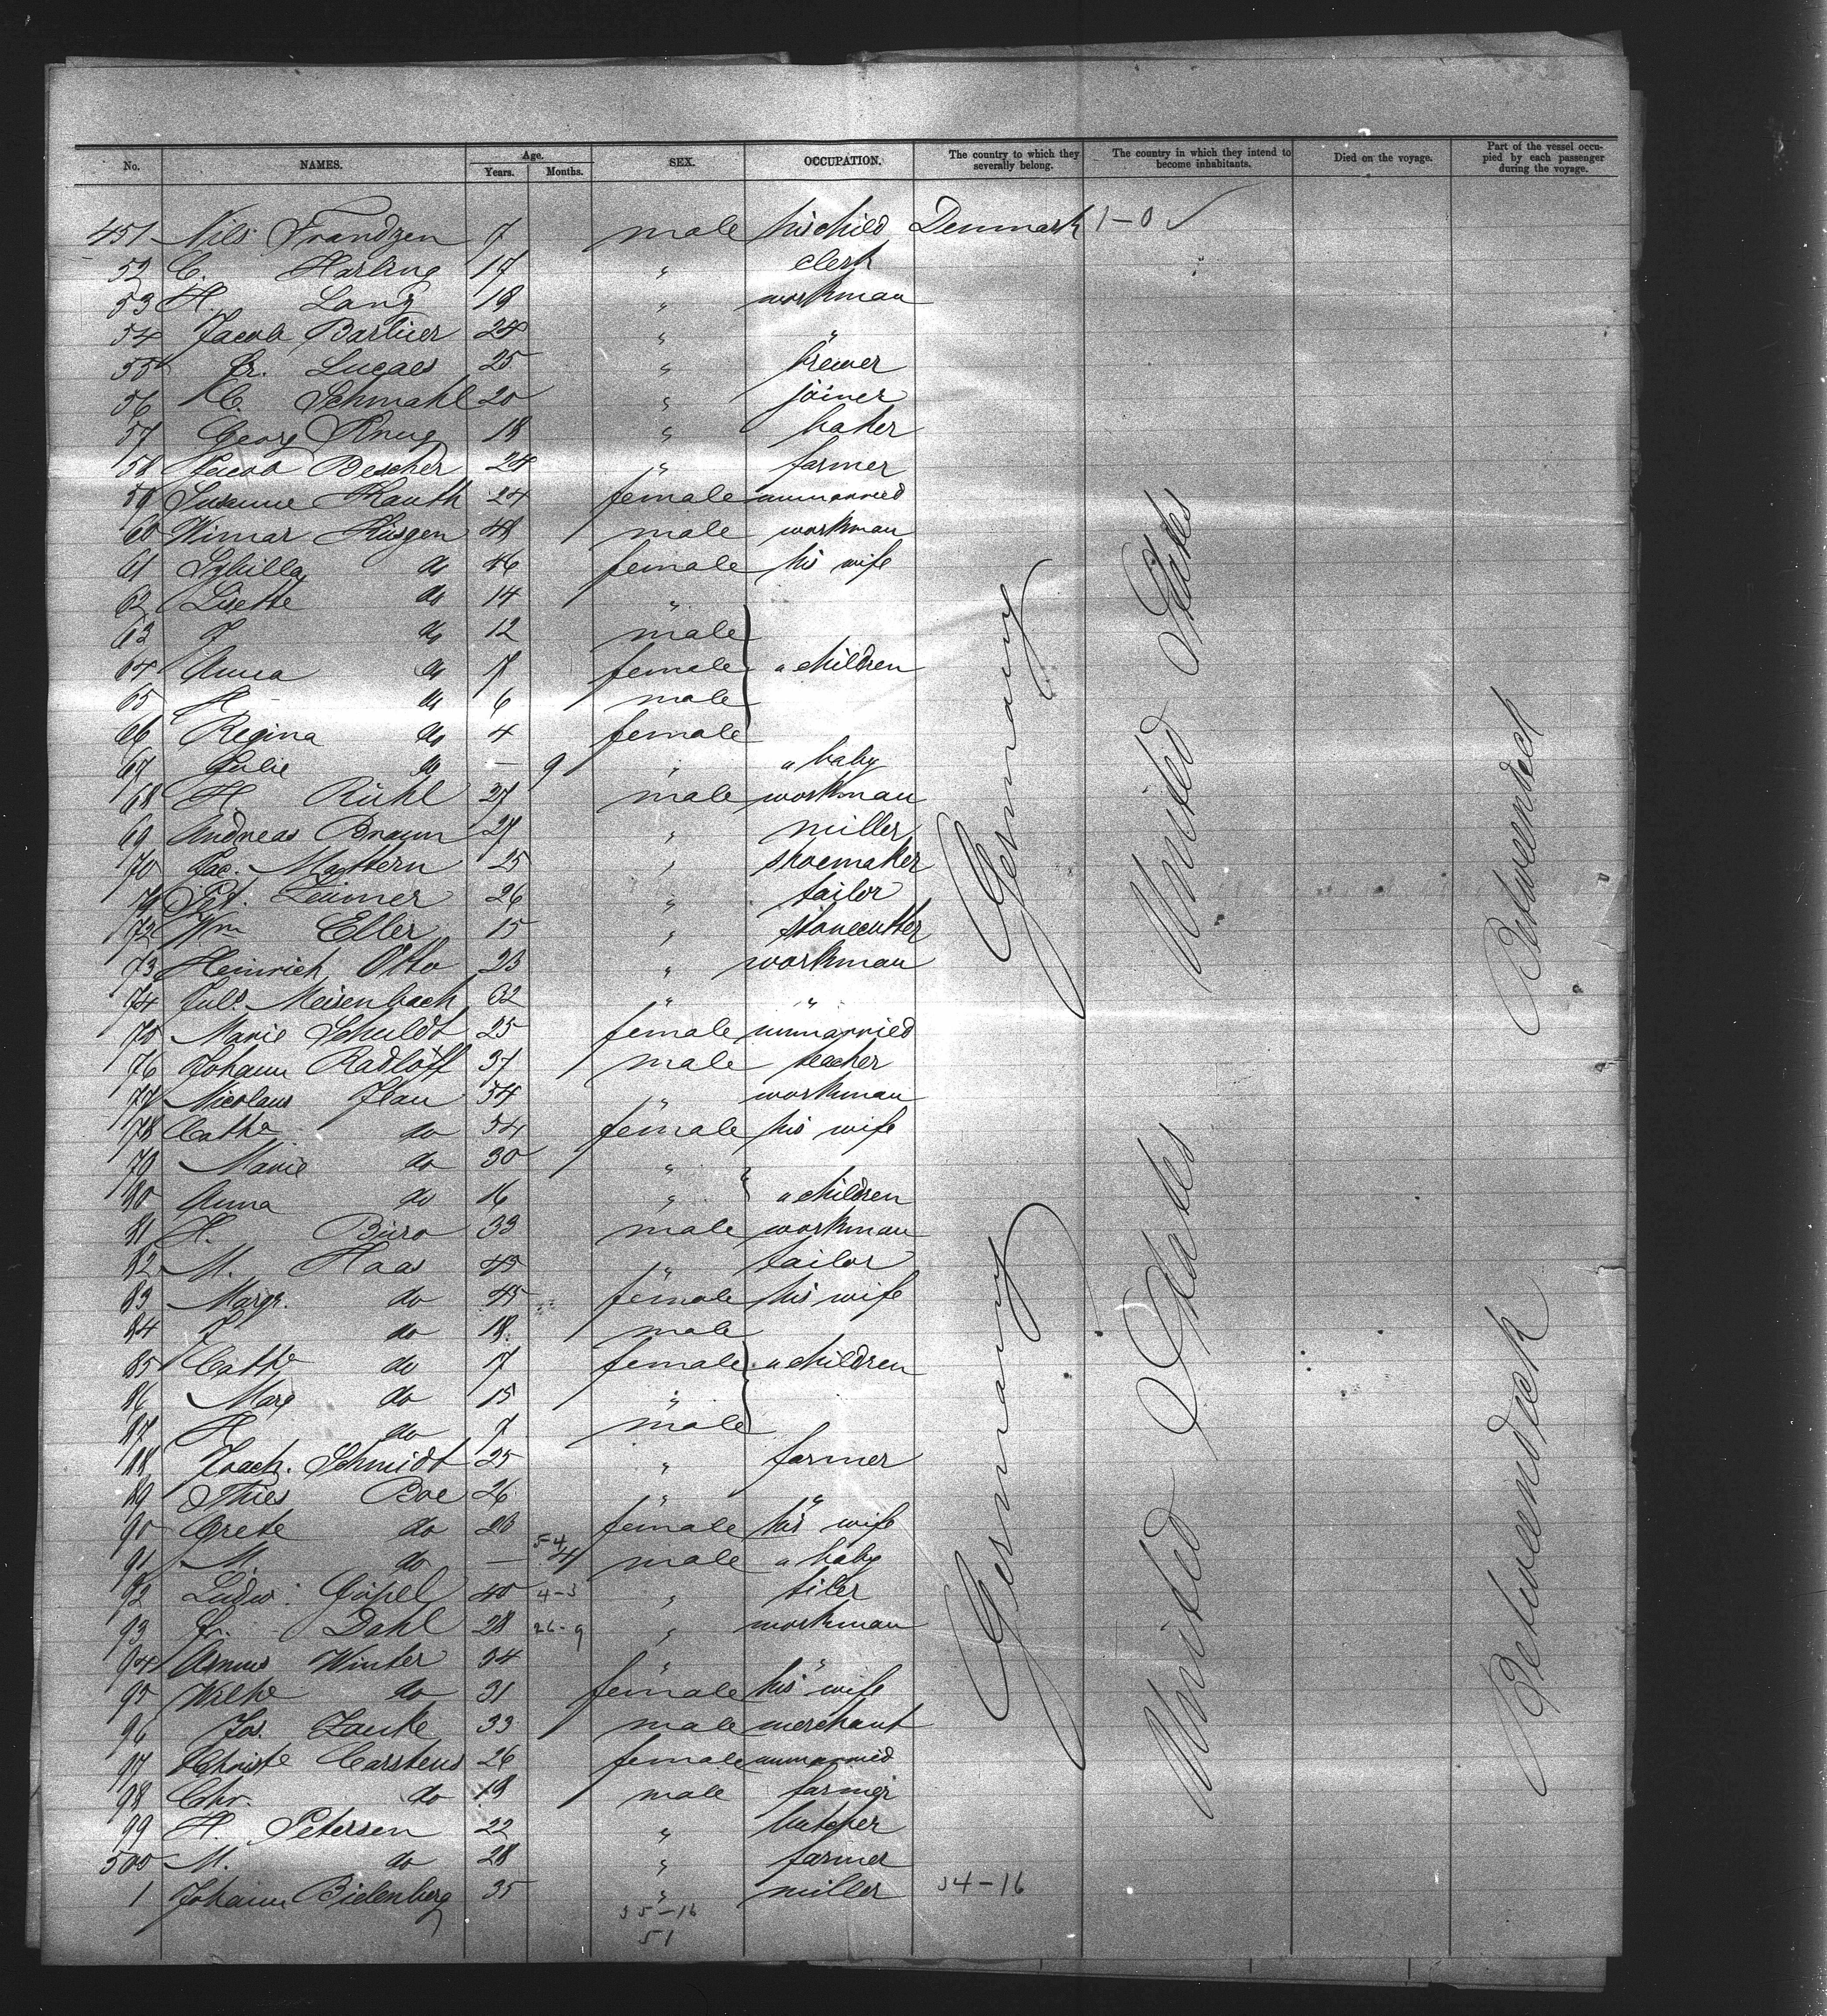 No. NAMES. Age. Years. Months. SEX. OCCUPATION. The country to which they severally belong. The country in which they intend to become inhabitants. Died on the voyage. Part of the vessel occupied by each passenger during the voyage.
451 Nils Frandzen 7 male his child Denmark 1-0 ✓
52 C. Harling 17 " clerk
53 H. Lang 18 " workman
54 Jacob Barbier 24 " "
55 Fr. Lucaes 25 " brewer
56 C. Schmahl 20 " joiner
57 Georg Krug 18 " baker
58 Jacob Bescher 24 " farmer
59 Susanne Kauth 24 female unmarried
60 Wimar Hüsgen 48 male workman
61 Sybilla do 46 female his wife
62 Lisette do 14 "
63 J do 12 male
64 Anna do 7 female " children
65 H do 6 male
66 Regina do 4 female
67 Julie do — 9 " " baby
68 H Rühl 27 male workman
69 Andreas Braun 27 " miller
70 Jac. Mattern 25 " shoemaker
71 Pet. Leimer 26 " tailor
72 Wm Eller 15 " stonecutter
73 Heinrich Otto 23 " workman
74 Juls. Meisenbach 62 " "
75 Marie Schuldt 25 female unmarried
76 Johann Radloff 37 male teacher
77 Nicolaus Flau 54 " workman
78 Cathe do 54 female his wife
79 Marie do 30 "
80 Anna do 16 " " children
81 H. Büro 33 male workman
82 M. Haas 45 " tailor
83 Margr. do 45 female his wife
84 J do 18 male
85 Cathe do 17 female " children
86 Marg do 15 "
87 H do 7 male
88 Joach. Schmidt 25 " farmer
89 Thies Boe 26 " "
90 Grete do 23 female his wife
91 M. do — 4 male " baby
92 Ludw. Göpel 40 4-3 " tiler
93 Fr. Dahl 28 26-9 " workman
94 Asmus Winter 34 " "
95 Wilhe do 31 female his wife
96 Jos. Lauke 33 male merchant
97 Christe Carstens 26 female unmarried
98 Chr. do 19 male farmer
99 H. Petersen 22 " butcher
500 M. do 28 " farmer
1 Johann Bielenberg 35 " miller 34-16
35-16
51
Germany
United States
Betweendeck
Germany
United States
Betweendeck